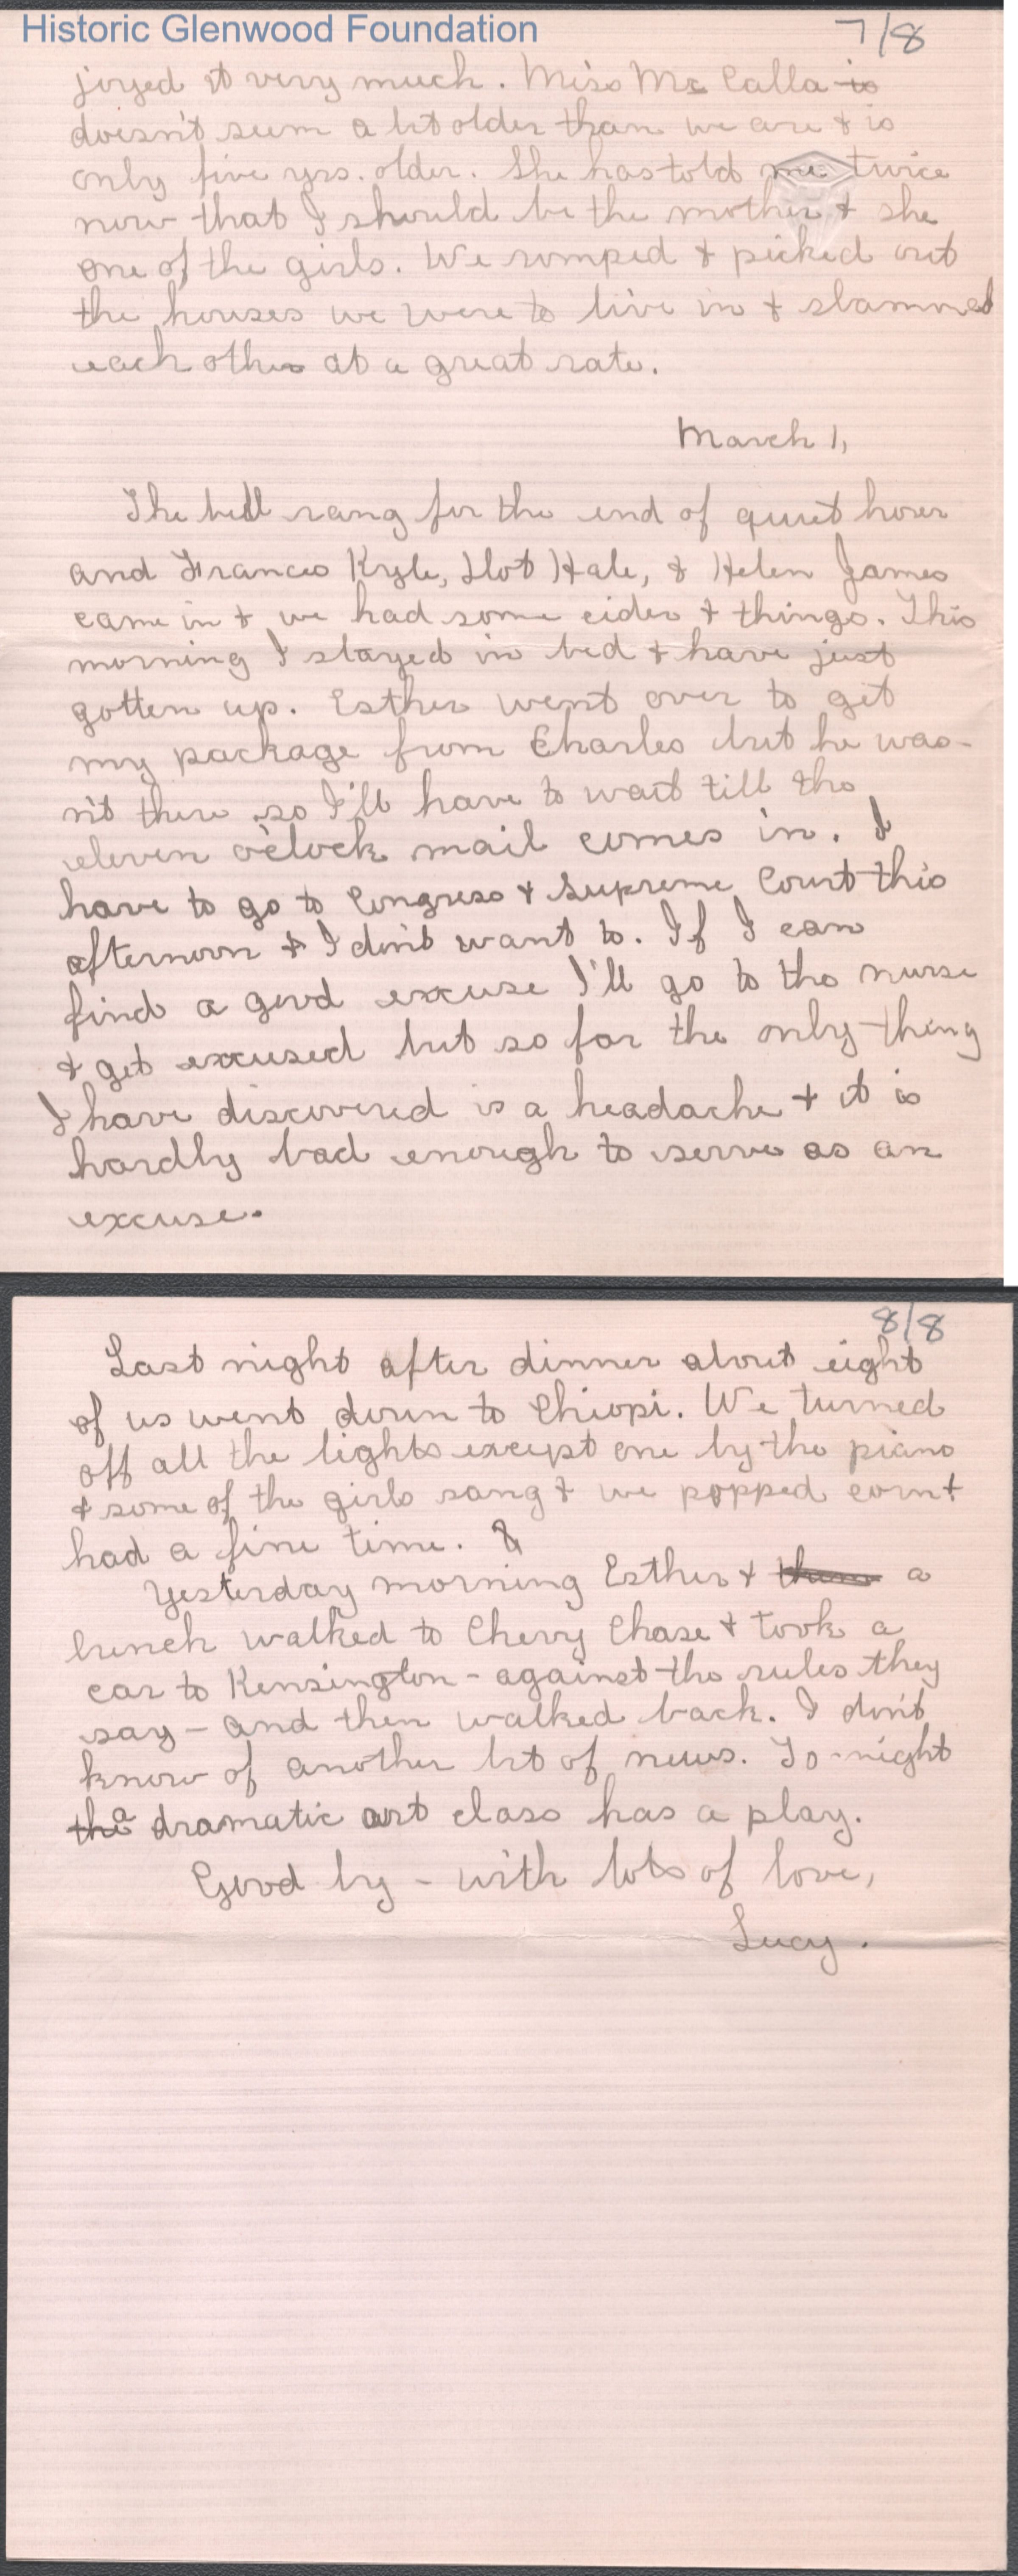 Historic Glenwood Foundation
7/8
joyed it very much. Miss Mc Calla is
doesn't seem a bit older than we are & is
only five yrs. older. She has told me twice
now that I should be the mother & she
one of the girls. We romped & picked out
the houses we were to live in & slammed
each other at a great rate.
March 1,
The bell rang for the end of quiet hour
and Frances Kyle, Dot Hale, & Helen James
came in & we had some cider & things. This
morning I stayed in bed & have just
gotten up. Esther went over to get
my package from Charles but he was-
n't there so I'll have to wait till the
eleven o'clock mail comes in. I
have to go to Congress & Supreme Court this
afternoon & I don't want to. If I can
find a good excuse I'll go to the nurse
& get excused but so far the only thing
I have discovered is a headache & it is
hardly bad enough to serve as an
excuse.
8/8
Last night after dinner about eight
of us went down to Chiopi. We turned
off all the lights except one by the piano
& some of the girls sang & we popped corn &
had a fine time. &
Yesterday morning Esther & them a
bunch walked to Chevy Chase & took a
car to Kensington - against the rules they
say - and then walked back. I don't
know of another bit of news. To-night
the a dramatic art class has a play.
Good by - with lots of love,
Lucy.